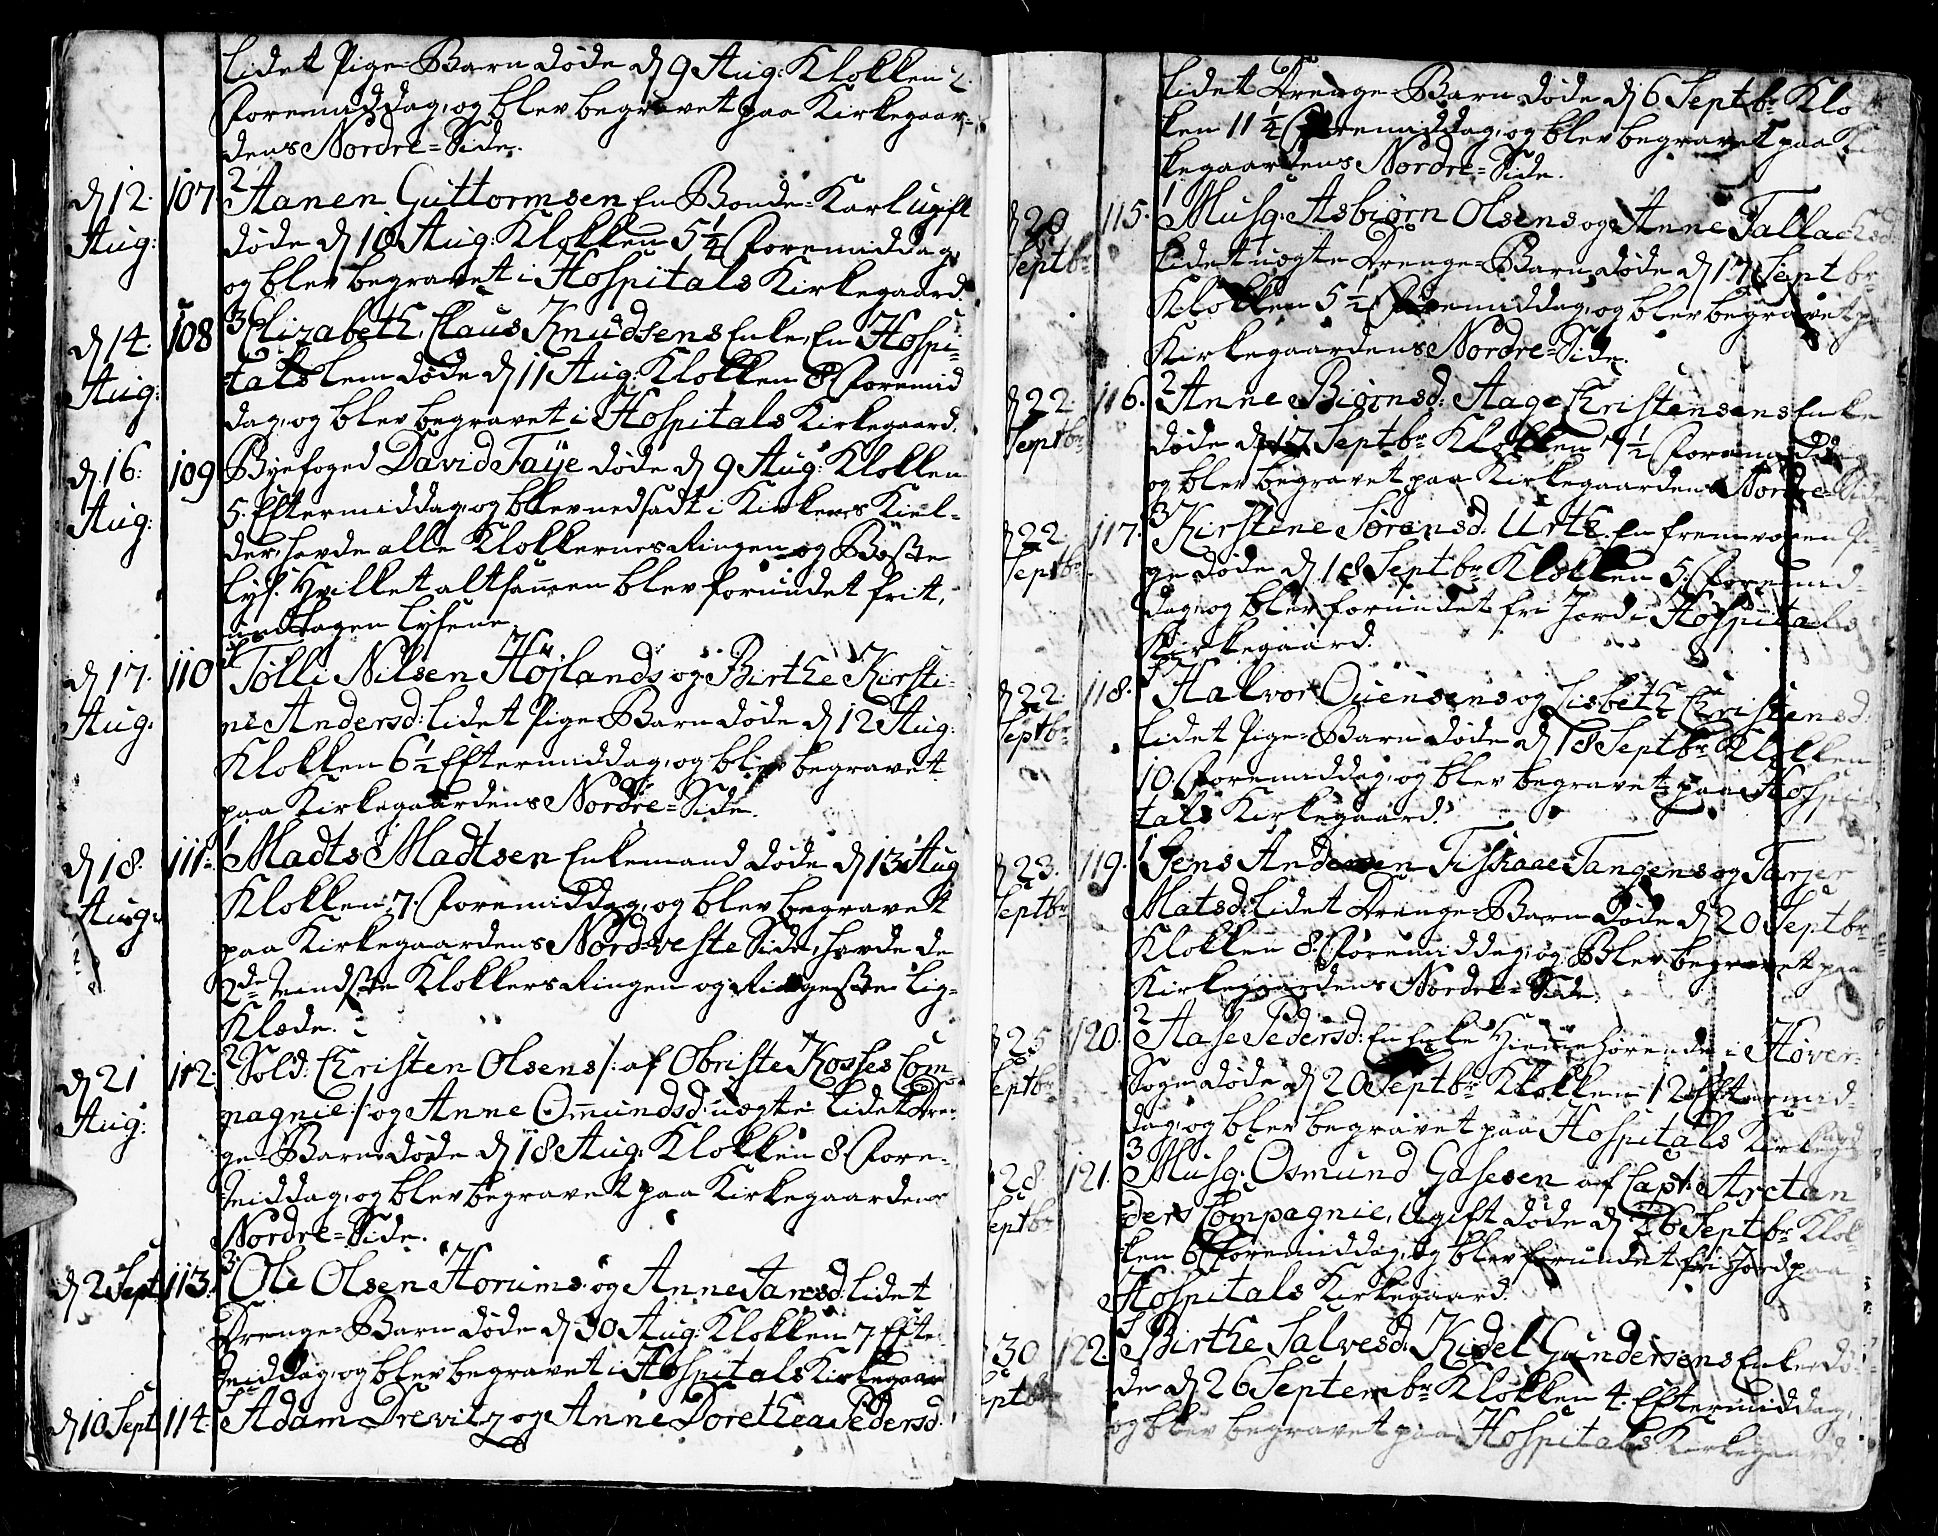 lidet Pige-Barn døde d 9 Aug: Klokken 2.
Foremiddag, og blev begravet paa Kirkegaar-
dens Nordre-Side.
d 12. Aug: 107. 2 Aanen Guttormsen En Bonde-Karl ugift
døde d 10 Aug: Klokken 5 1/4 Foremiddag,
og blev begravet i Hospitals Kirkegaard.
d 14. Aug: 108 3 Elizabeth, Claus Knudsens Enke, En Hospi-
tals lem døde d 11 Aug: Klokken 8 Foremid
dag, og blev begravet i Hospitals Kirkegaard.
d 16. Aug: 109 Byefoged David Faÿe døde d 9 Aug: Klokken
5. Eftermiddag, og blev nedsadt i Kirkens Kiel-
der, havde alle Klokkernes Ringen og Beste
Lys. Hvilket altsammen blev forundet frit,
undtagen Lysene.
d 17. Aug: 110 1 Tølli Nilsen Høÿlands og Birthe Kirsti-
ne Andersd: lidet Pige-Barn døde d 12 Aug:
Klokken 6 1/2 Eftermiddag, og blev begravet
paa Kirkegaardens Nordre-Side.
d 18. Aug: 111. 1 Madts Madtsen Enkemand døde d 13 Aug
Klokken 7. Foremiddag, og blev begravet
paa Kirkegaardens Nord-veste Side, havde de
2de mindste Klokkers Ringen og Ringeste Lig-
Klæde.
d 21 Aug: 112. 2 Sold: Christen Olsens /: af Obriste Kosses Com-
pagnie :/ og Anne Omundsd: uægte lidet Dren-
ge-Barn døde d 18 Aug: Klokken 8. Fore-
middag, og blev begravet paa Kirkegaardens
Nordre-Side.
d 2 Sept: 113. 3 Ole Olsen Horums og Anne Jansd: lidet
Drenge-Barn døde d 30 Aug: Klokken 7. Efter
middag, og blev begravet i Hospitals Kirkegaard
d 10 Sept 114. 1 Adam Drewitz og Anne Dorethea Pedersd:
lidet Drenge-Barn døde d 6 Septbr Klo
ken 11 1/4 Foremiddag, og blev begravet paa Kir
kegaardens Nordre-Side.
d 20 Septbr 115. 1 Musq: Asbiørn Olsens og Anne Tallachsd:
lidet uægte Drenge-Barn døde d 17 Septbr
Klokken 5 1/2 Foremiddag, og blev begravet pa
Kirkegaardens Nordre-Side.
d 22 Septbr 116. 2 Anne Biørnsd: Aage Christensens Enke
døde d 17 Septbr Klokken 9 1/2 Foremiddag
og blev begravet paa Kirkegaardens Nordre-Side
d 22 Septbr 117. 3 Kirstine Sørensd: Urth. En fremvoxen Pi-
ge døde d 18 Septbr Klokken 5. Foremid-
dag, og blev forundet fri Jord i Hospitals
Kirkegaard.
d 22. Septbr 118. 1 Halvor Ouensens og Lisbeth Christensd:
lidet Pige-Barn døde d 18 Septbr Klokken
10. Foremiddag, og blev begravet paa Hospi
tals Kirkegaard.
d 23. Septbr 119. 1 Jens Andersen Fiskaae Tangens og Tarjer
Matsd: lidet Drenge-Barn døde d 20 Septbr
Klokken 8. Foremiddag, og Blev begravet paa
Kirkegaardens Nordre-Side.
d 25 Septbr 120. 2 Aase Pedersd: En Enke Hiemmehørende i Høver-
Sogn døde d 20 Septbr Klokken 12 Eftermid-
dag, og blev begravet paa Hospitals Kirkegaard
28 Septbr 121. 3 Musq: Osmund Gasesen af Capt: Arctan
ders Compagnie, Ugift døde d 26 Septbr Klok-
ken 6 Foremiddag, og blev forundet fri Jord paa
Hospitals Kirkegaard.
30 Septbr 122. 1 Birthe Salvesd: Kidel Gundersens Enke dø-
de d 26 Septembr Klokken 4. Eftermiddag,
og blev begravet paa Hospitals Kirkegaard.